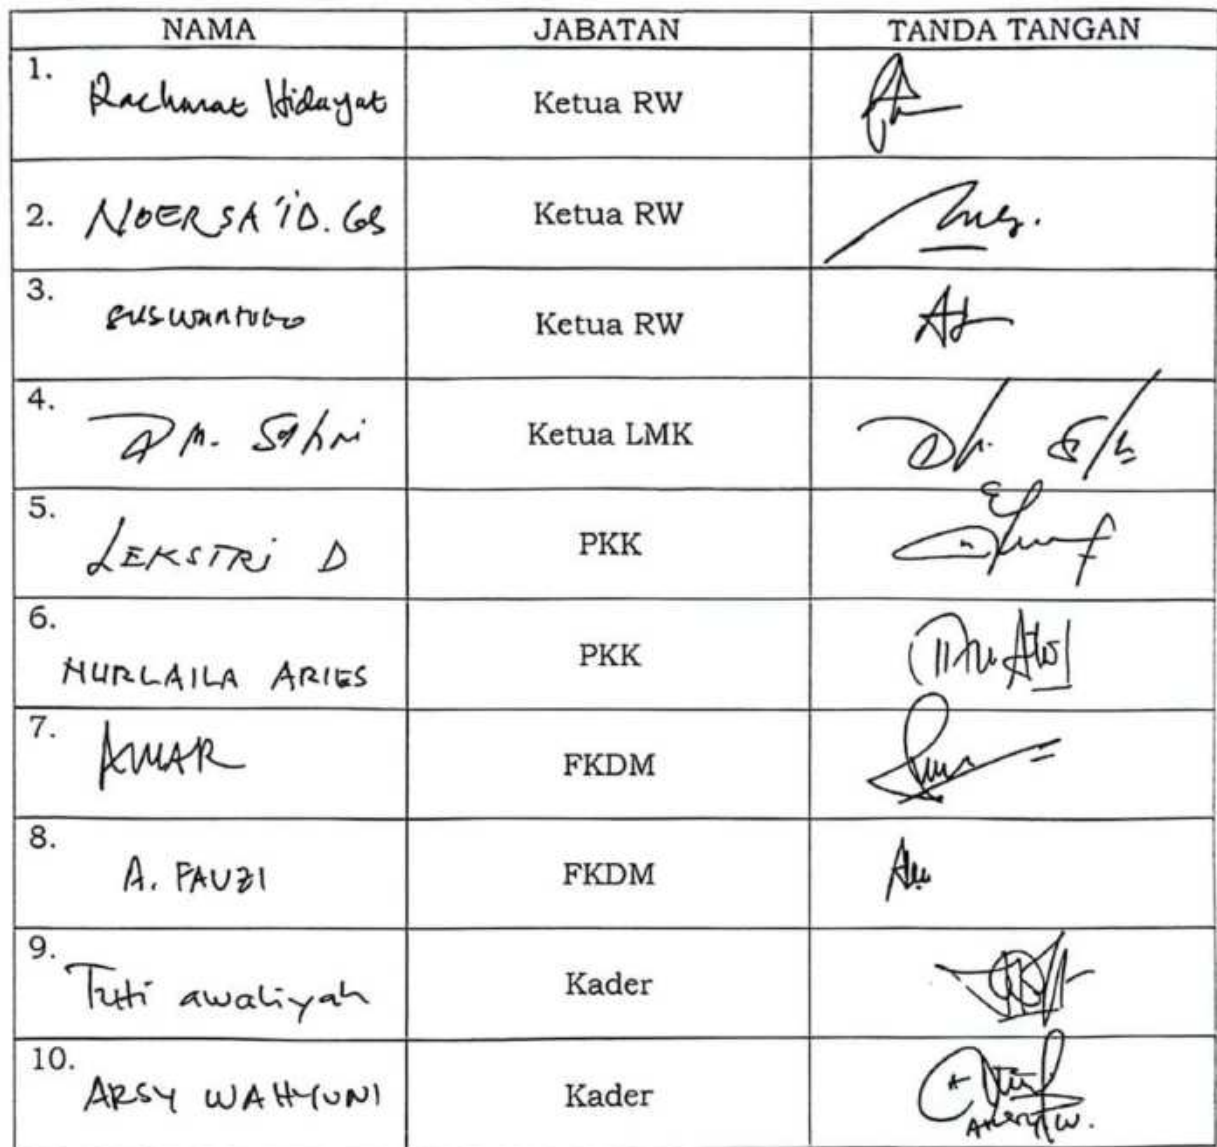 NAMA JABATAN TANDA TANGAN
1. Rachmat Hidayat Ketua RW
2. NOERSA'ID. GS Ketua RW
3. Ketua RW
4. Sahri Ketua LMK
5. LEKSTRI D PKK
6. NURLAILA ARIES PKK
7. AMAR FKDM
8. A. FAUZI FKDM
9. Tuti awaliyah Kader
10. ARSY WAHYUNI Kader